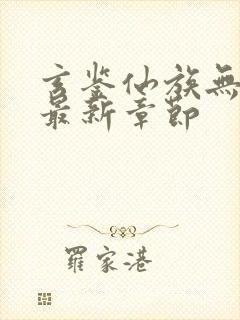 玄鉴仙族無
最新章節
羅家港